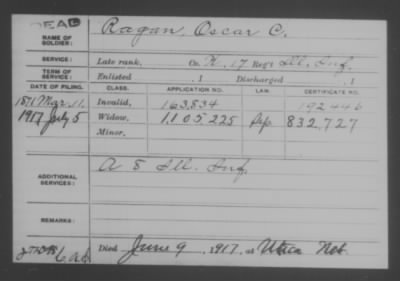 DEAD
NAME OF SOLDIER: Ragan, Oscar C.
SERVICE: Late rank, Co. K, 17 Reg't Ill. Inf.
TERM OF SERVICE: Enlisted , 1 Discharged , 1
DATE OF FILING. CLASS. APPLICATION NO. LAW. CERTIFICATE NO.
1871 Mar. 11. Invalid, 163,834 192446
1917 July 5 Widow, 1105225 832,727
Minor,
ADDITIONAL SERVICES: A 8 Ill. Inf.
REMARKS:
Died June 9, 1917, at Utica Neb